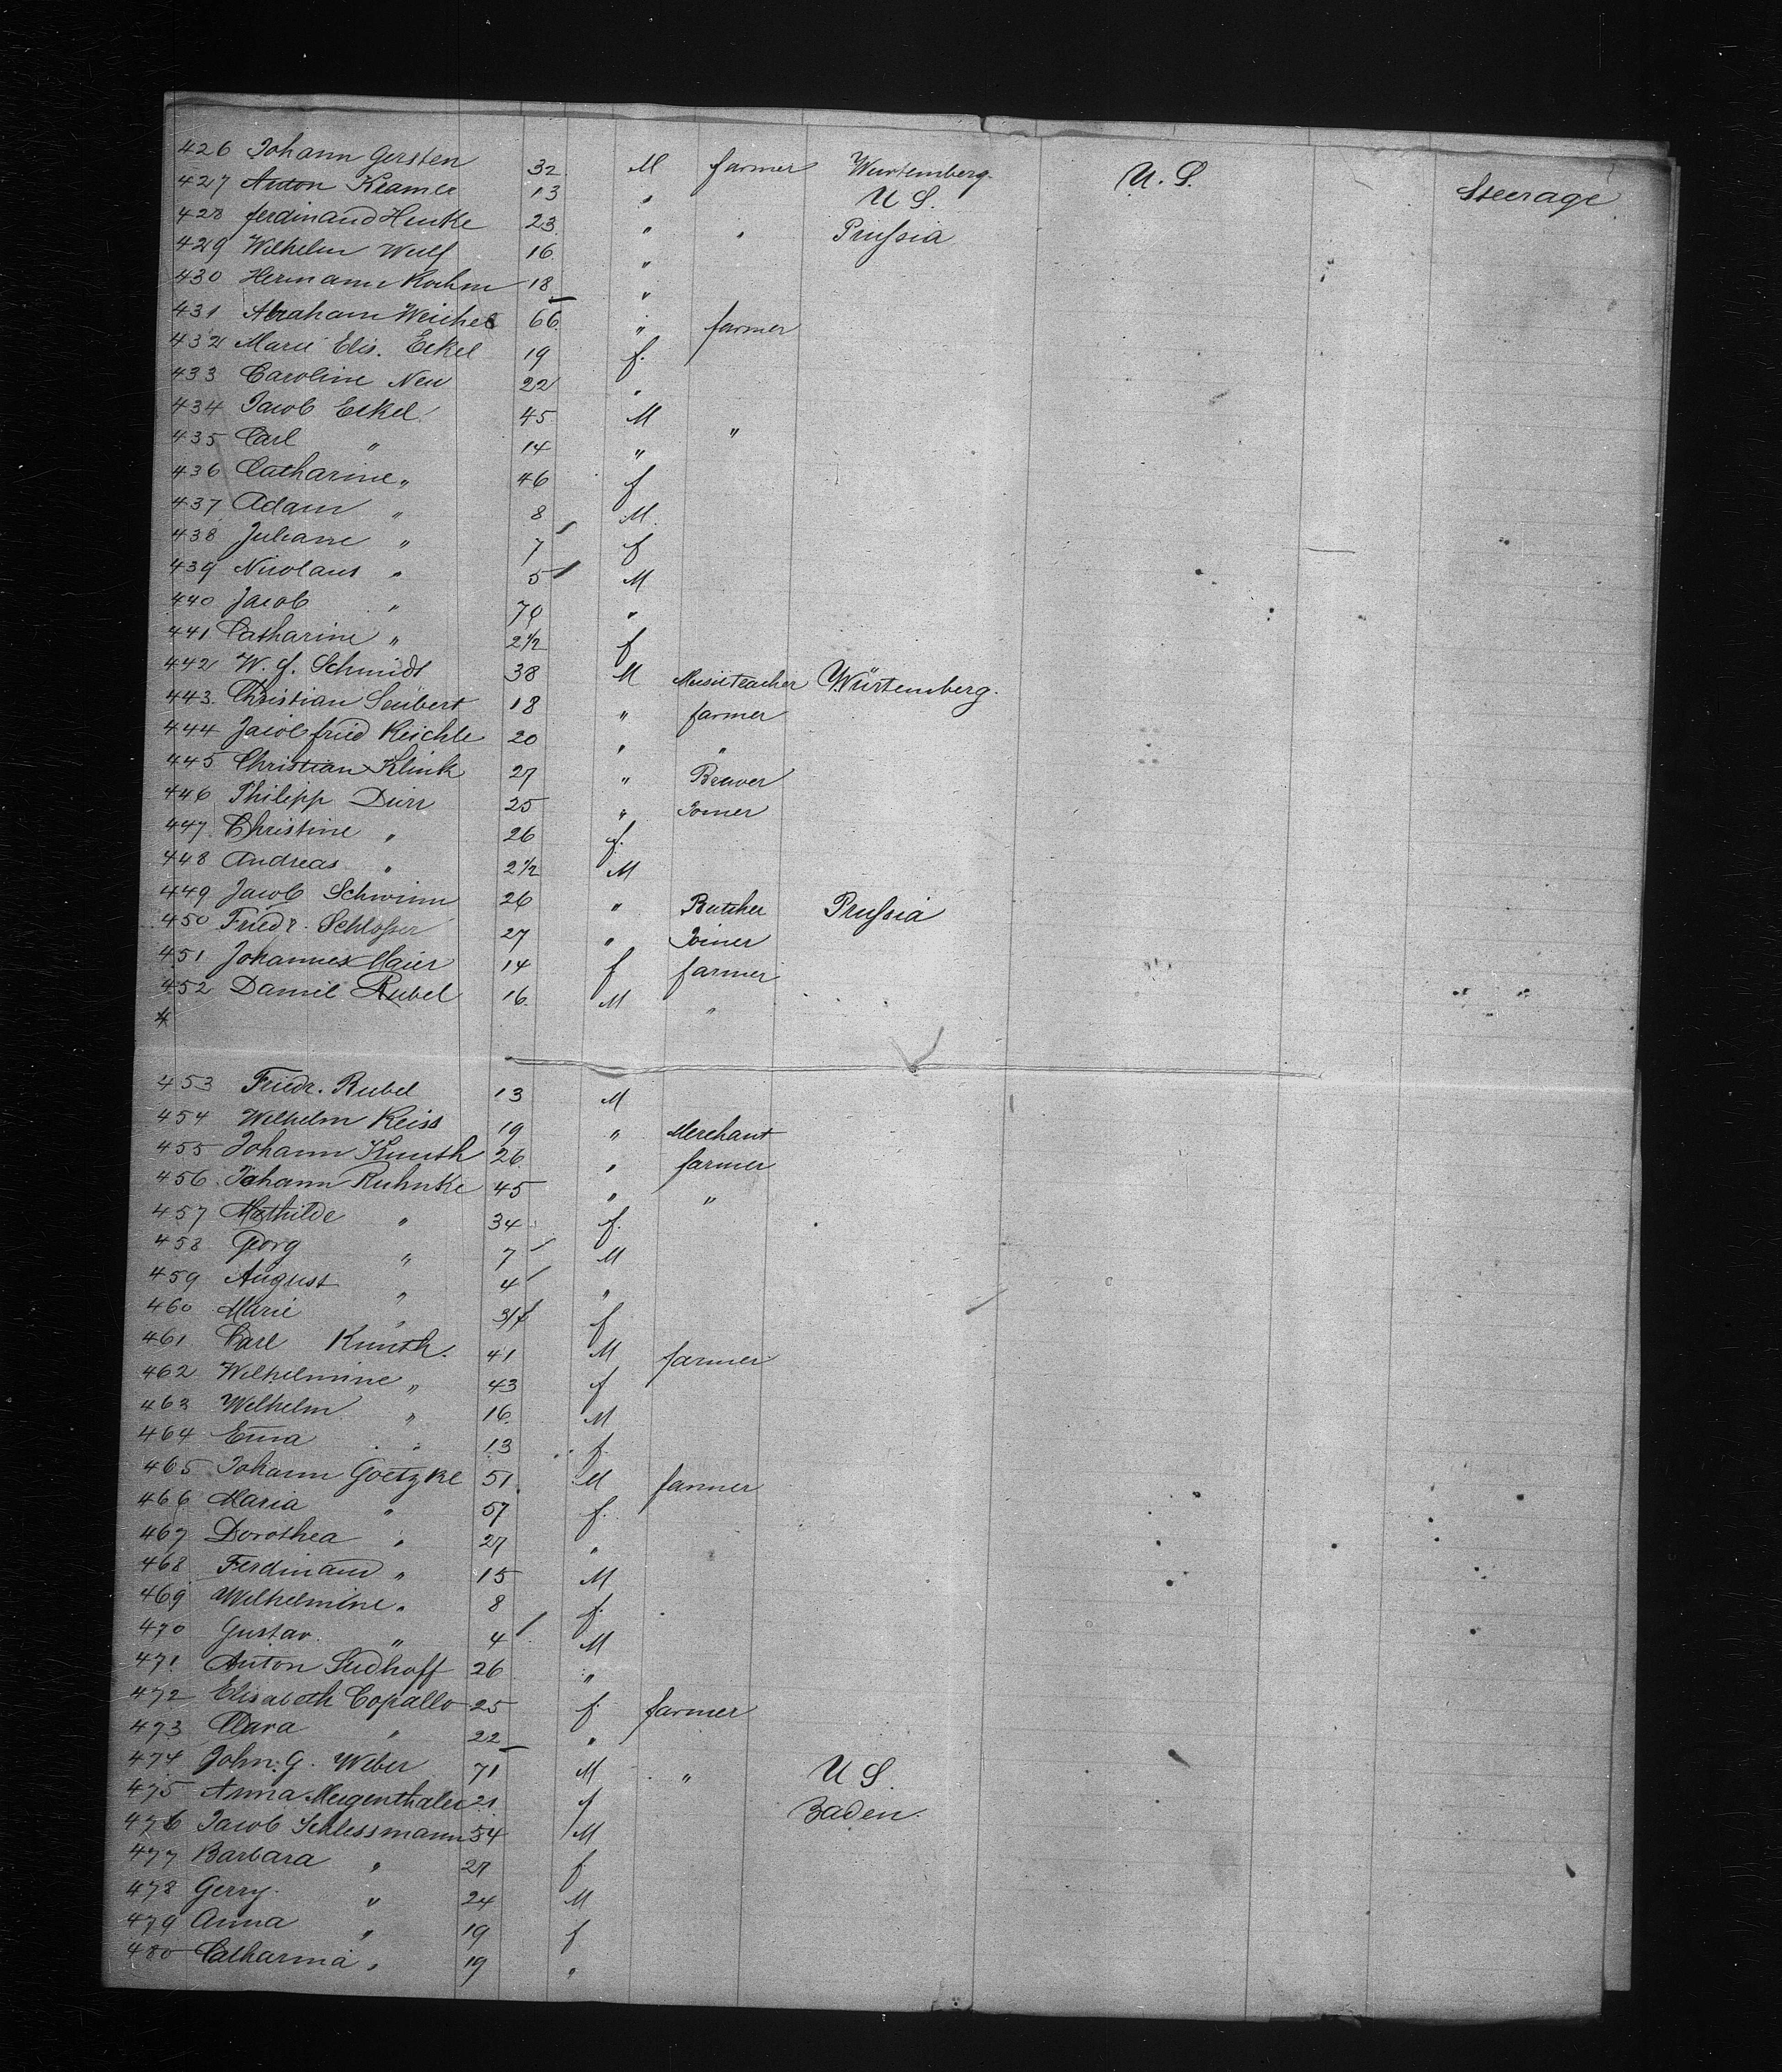 426 Johann Gersten 32 M farmer Wurtemberg. U. S. Steerage
427 Anton Kramer 13 " U S.
428 ferdinand Henke 23. " " Prussia
429 Wilhelm Wulf 16. "
430 Hermann Kochm 18 "
431 Abraham Weichel 66. " farmer
432 Marie Elis. Eckel 19 f.
433 Caroline Neu 22 "
434 Jacob Eckel 45 M "
435 Carl " 14 "
436 Catharine " 46 f
437 Adam " 8 M.
438 Juliane " 7 f
439 Nicolaus " 5 M
440 Jacob " 70 "
441 Catharine " 2 1/2 f
442 W. f. Schmidt 38 M Musicteacher Würtemberg.
443. Christian Seubert 18 " farmer
444 Jacob fried Reichle 20 " "
445 Christian Klink 27 " Brewer
446 Philipp Dürr 25 " Joiner
447. Christine " 26 f.
448 Andreas " 2 1/2 M
449 Jacob Schwinn 26 " Butcher Prussia
450 Friedr. Schlosser 27 " Joiner
451 Johannes Maier 14 f farmer
452 Daniel Rubel 16. M "
453 Friedr. Rubel 13 M
454 Wilhelm Reiss 19 " Merchant
455 Johann Kunth 26. " farmer
456. Johann Ruhnke 45 " "
457 Mathilde " 34 f.
458 Georg " 7 M
459 August " 4 "
460 Marie " f
461 Carl Kunth. 41 M farmer
462 Wilhelmine " 43 f
463 Wilhelm " 16. M
464 Erna " 13 f.
465 Johann Goetzke 51. M farmer
466 Maria " 57 f.
467 Dorothea " 27 "
468 Ferdinand " 15 M
469 Wilhelmine " 8 f.
470 Gustav " 4 M
471 Anton Sudhoff 26 "
472 Elisabeth Copallo 25 f farmer
473 Clara " 22 "
474 John. G. Weber 71 M " U S.
475 Anna Mergenthaler 21 f Baden.
476 Jacob Schlessmann 54 M
477 Barbara " 27 f
478 Gerry. " 24 M
479 Anna " 19 f
480 Catharina " 19 "